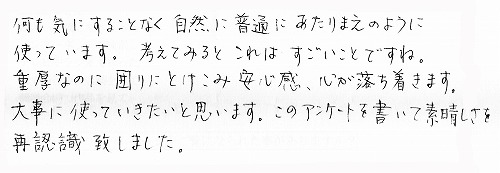 何も気にすることなく自然に普通にあたりまえのように
使っています。考えてみるとこれはすごいことですね。
重厚なのに困りにとけこみ安心感、心が落ち着きます。
大事に使っていきたいと思います。このアンケートを書いて素晴しさを
再認識致しました。